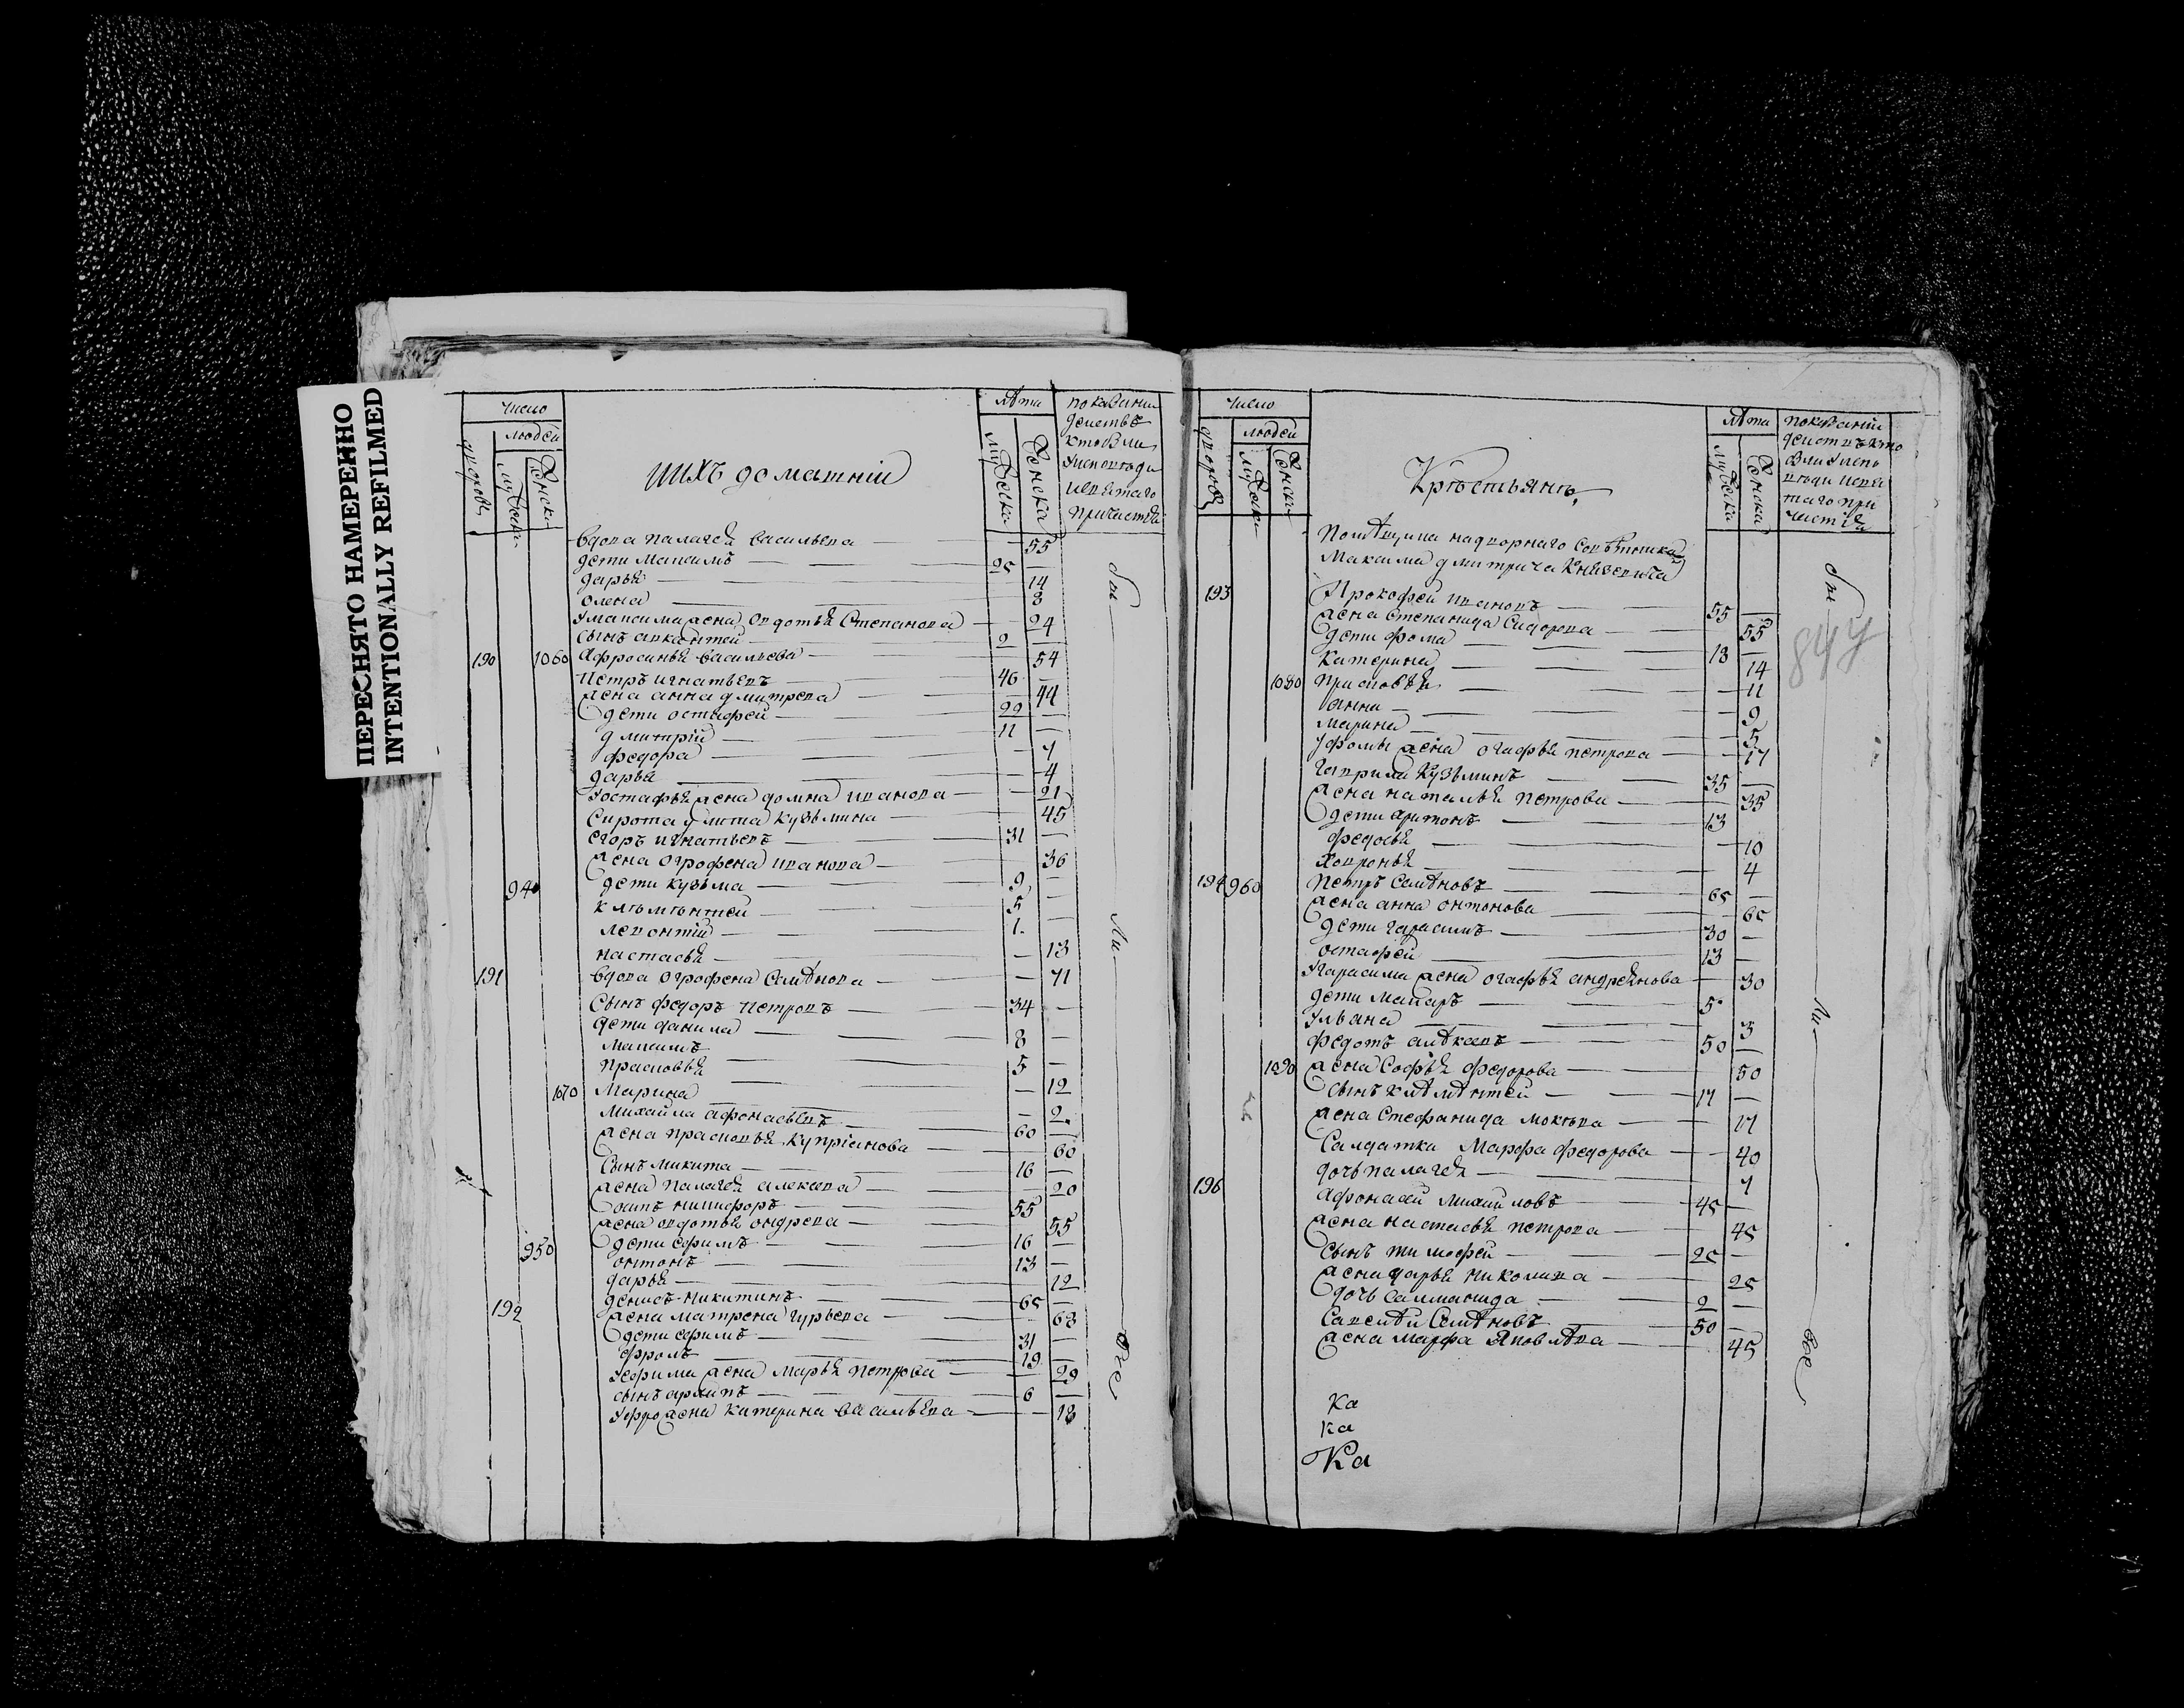 ПЕРЕСНЯТО НАМЕРЕННО
INTENTIONALLY REFILMED
число
людей
дворовъ
мужеска
женска
ИИХЪ домашнїи
лѣта
мужеска
женска
показанїи
действъ
кто были
у исповѣди
и святаго
причастїя
вдова палагея васильева 55
дети Максимъ 25
дарья 14
олена 8
У максима жена овдотья Степанова 24
сынъ аркантей 2
190 1060 Афросинья васильева 54
Петръ игнатьевъ 46
жена анна дмитрева 44
дети остафей 22
дмитрїй 11
федора 7
дарья 4
У остафья жена домна иванова 21
Сирота улита кузьмина 45
егоръ игнатьевъ 31
жена огрофена иванова 36
940 дети кузьма 9
клѣмѣнтей 5
левонтїй 1
настасья 13
191 вдова огрофена Семѣнова 71
Сынъ федоръ петровъ 34
дети данила 8
Максимъ 5
прасковья 12
1070 Марина 2
михайла афонасьевъ 60
жена прасковья купрїанова 60
Сынъ микита 16
жена палагея алексева 20
никифоръ 55
жена овдотья ондрева 55
950 дети ефимъ 16
онтонъ 13
дарья 12
192 денисъ никитинъ 65
жена матрена гурьева 63
дети ефимъ 31
фролъ 19
У ефима жена марья петрова 29
сынъ архипъ 6
У фрола жена катерина васильева 18
бы
ли
все
число
людей
дворовъ
мужеска
женска
Крѣстьянъ
лѣта
мужеска
женска
показанїи
действъ кто
были у испо
вѣди и свя
таго при
частїя
Помѣщика надворнаго совѣтника
Максима дмитрича Княжевича
193 Прокофей ивановъ 55
жена Степанида Сидорова 55
дети фома 18
катерина 14
1080 прасковья 11
анна 9
марина 5
У фомы жена огафья петрова 17
гаврила кузьминъ 35
жена наталья петрова 35
дети харитонъ 13
федосья 10
ховронья 4
194 960 Петръ Семѣновъ 65
жена анна онтонова 65
дети гарасимъ 30
остафей 13
У гарасима жена огафья андреянова 30
дети макаръ 5
Ульяна 3
федотъ алѣксевъ 50
1090 жена Софья федорова 50
Сынъ клѣмѣнтей 17
жена Стефанида мокѣева 17
Салдатка Марфа федорова 40
дочь палагея 7
196 Афонасей михайловъ 45
жена настасья петрова 45
Сынъ тимофей 25
жена дарья николаева 25
дочь Салманида 2
Савелѣй Семѣновъ 50
жена марфа яковлѣва 45
бы
ли
все
844
Ка
ка
Ка